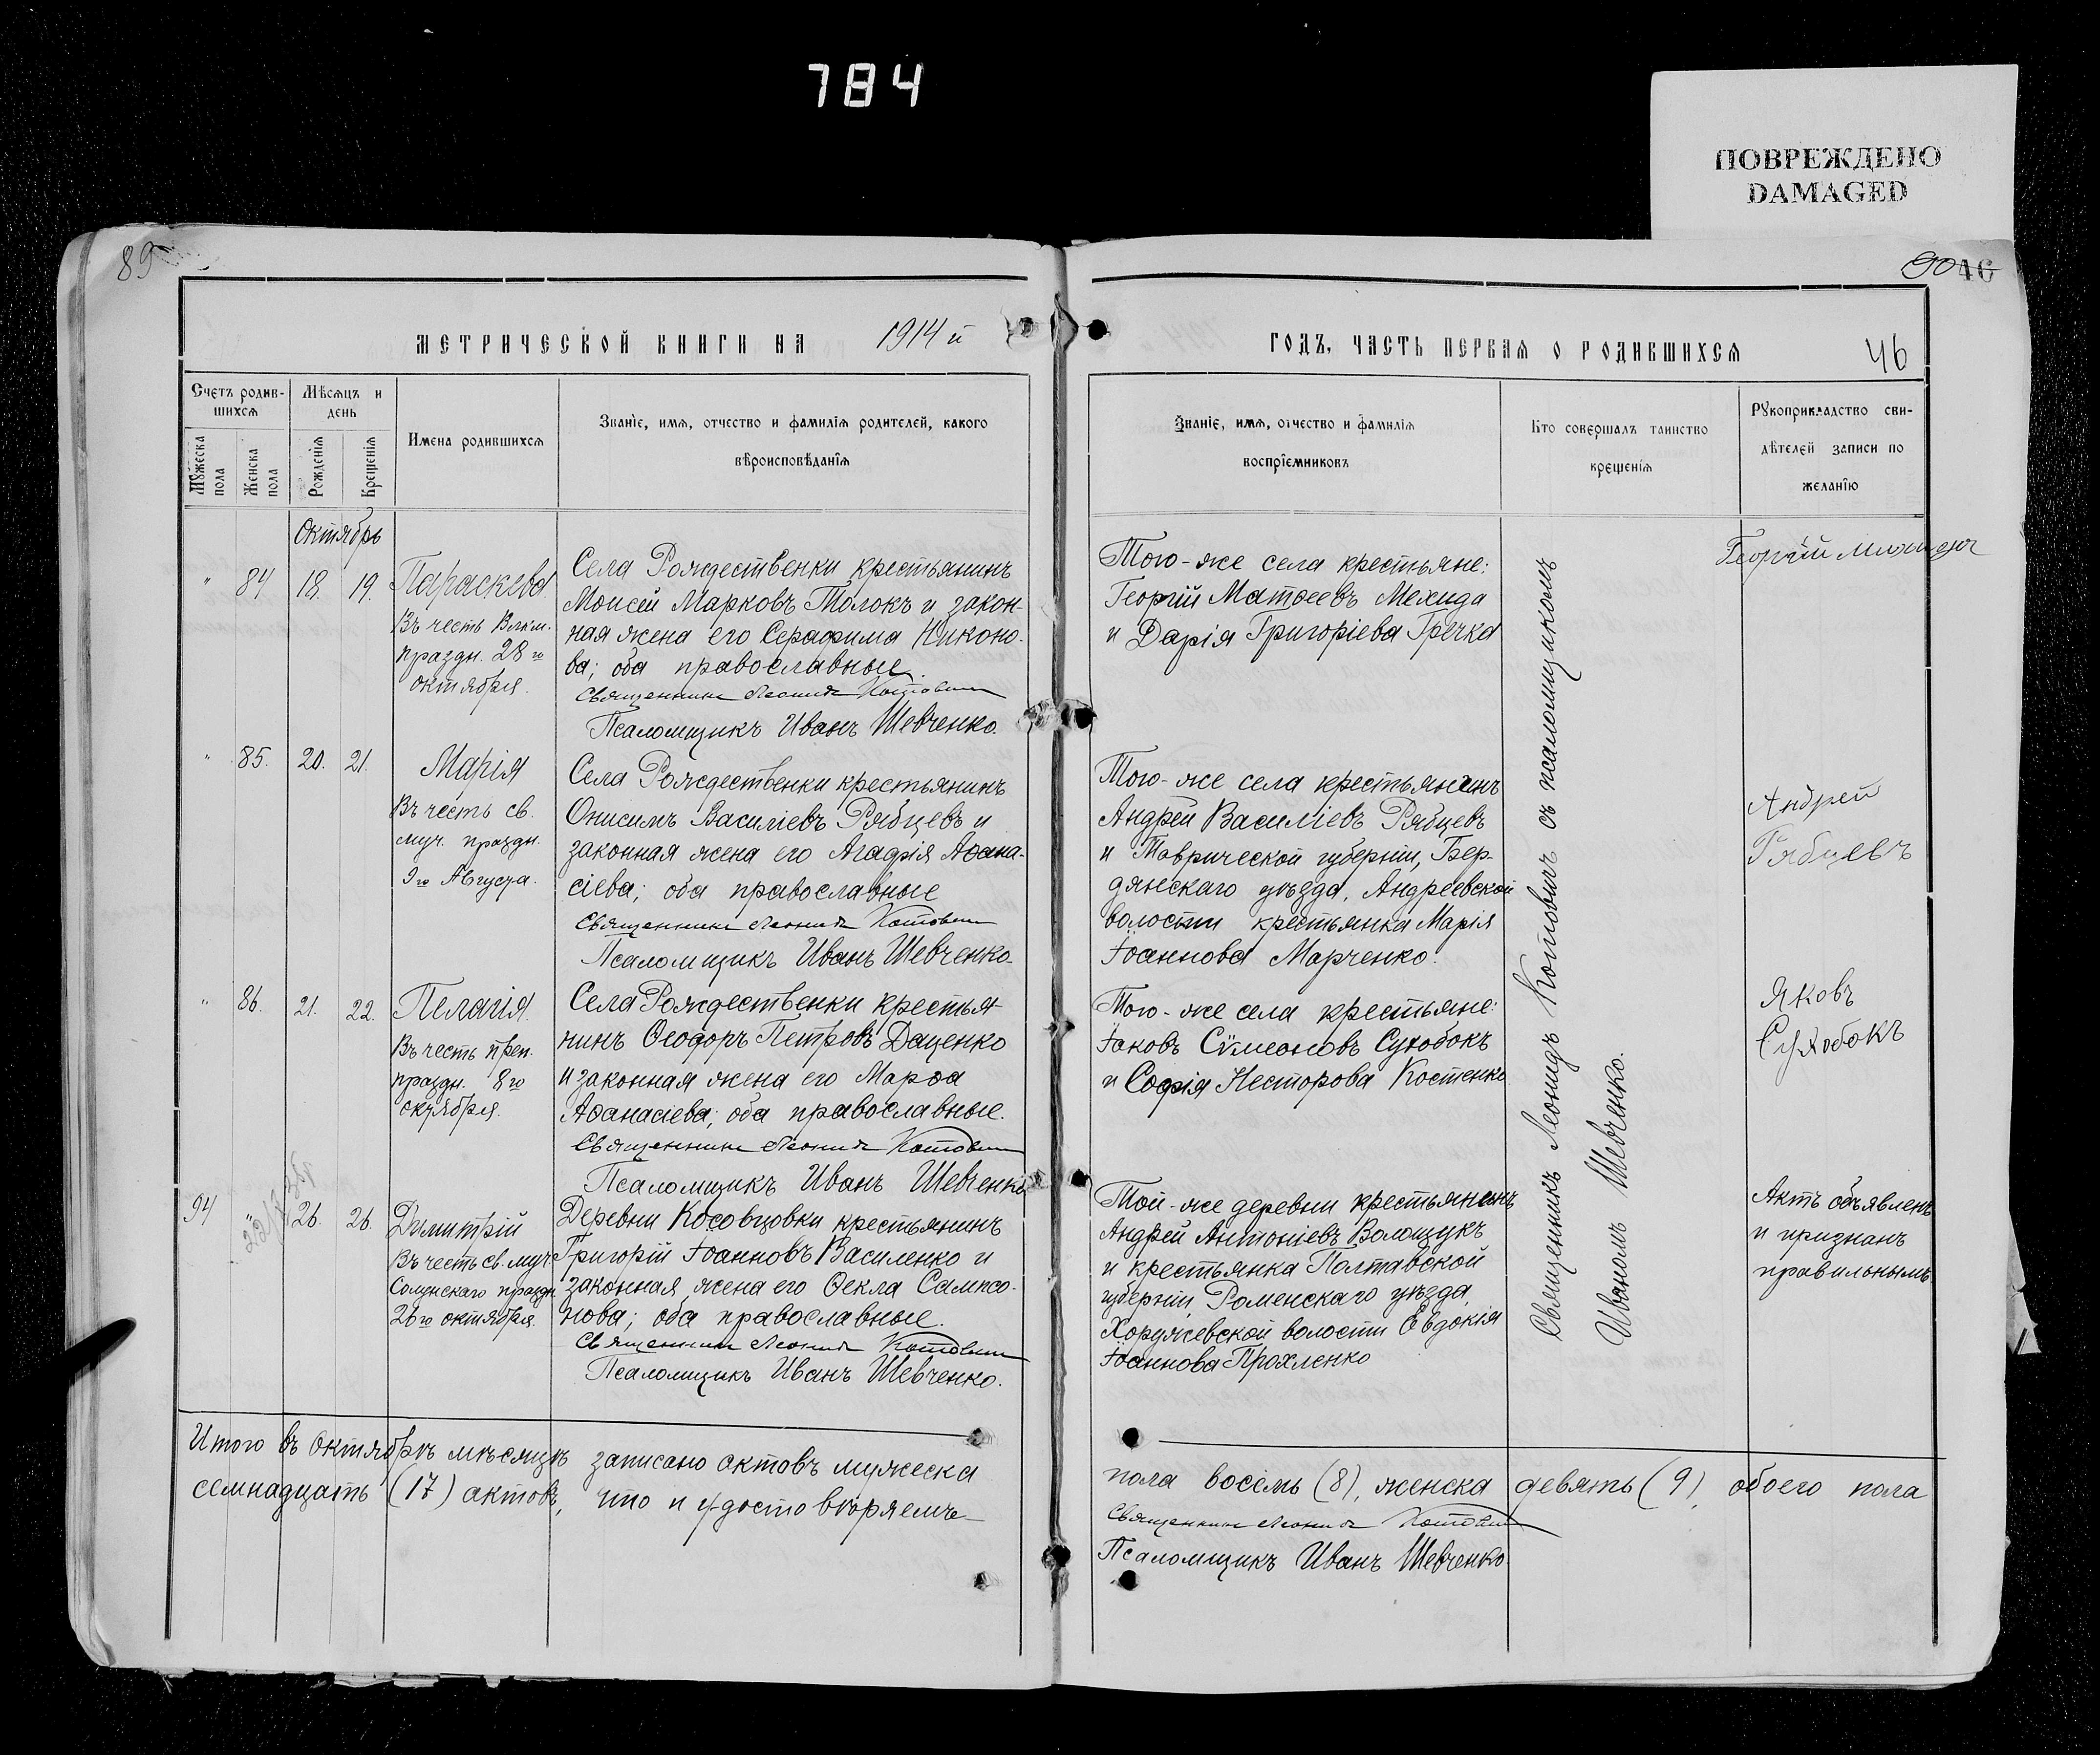 784
ПОВРЕЖДЕНО
DAMAGED
89
90 46
МЕТРИЧЕСКОЙ КНИГИ НА 1914 й
ГОДЪ, ЧАСТЬ ПЕРВАЯ О РОДИВШИХСЯ
46
Счетъ родив-
шихся
Мѣсяцъ и
день
Мужеска
пола
Женска
пола
Рожденія
Крещенія
Имена родившихся
Званіе, имя, отчество и фамилія родителей, какого
вѣроисповѣданія
Званіе, имя, отчество и фамилія
воспріемниковъ
Кто совершалъ таинство
крещенія
Рукоприкладство сви-
дѣтелей записи по
желанію
Октябрь
" 84 18. 19.
Параскева
Въ честь Вмкм.
праздн. 28го
октября.
Села Рождественки крестьянинъ
Моисей Марковъ Толокъ и закон-
ная жена его Серафима Никоно-
ва; оба православные.
Священникъ Леонидъ Котовичъ
Псаломщикъ Иванъ Шевченко.
Того-же села крестьяне:
Георгій Матѳеевъ Мехида
и Дарія Григоріева Гречка
Георгій
" 85. 20. 21.
Марія
Въ честь св.
муч. праздн.
9го Августа.
Села Рождественки крестьянинъ
Онисимъ Василіевъ Рябцевъ и
законная жена его Агафія Аѳана-
сіева; оба православные
Священникъ Леонидъ Котовичъ
Псаломщикъ Иванъ Шевченко.
Того-же села крестьянинъ
Андрей Василіевъ Рябцевъ
и Таврической губерніи, Бер-
дянскаго уѣзда, Андреевской
волости крестьянка Марія
Іоаннова Марченко.
Андрей
Рябцевъ
" 86. 21. 22.
Пелагія.
Въ честь преп.
праздн. 8го
октября.
Села Рождественки крестья-
нинъ Ѳеодоръ Петровъ Даценко
и законная жена его Марѳа
Аѳанасіева; оба православные.
Священникъ Леонидъ Котовичъ
Псаломщикъ Иванъ Шевченко
Того-же села крестьяне:
Іаковъ Сѵмеоновъ Сухобокъ
и Софія Несторова Костенко
Яковъ
Сухобокъ
94 " 26. 26.
Дымитрій
Въ честь св. муч.
Солунскаго праздн.
26го октября.
Деревни Косовцовки крестьянинъ
Григорій Іоанновъ Василенко и
законная жена его Ѳекла Сампсо-
нова; оба православные.
Священникъ Леонидъ Котовичъ
Псаломщикъ Иванъ Шевченко.
Той-же деревни крестьянинъ
Андрей Антоніевъ Волощукъ
и крестьянка Полтавской
губерніи, Роменскаго уѣзда,
Хоружевской волости Евдокія
Іоаннова Прохленко
Актъ объявленъ
и признанъ
правильнымъ
Священникъ Леонидъ Котовичъ съ псаломщикомъ
Иваномъ Шевченко.
Итого въ Октябрѣ мѣсяцѣ записано актовъ мужеска
пола восемь (8), женска девять (9), обоего пола
семнадцать (17) актовъ, что и удостовѣряемъ
Священникъ Леонидъ Котовичъ
Псаломщикъ Иванъ Шевченко